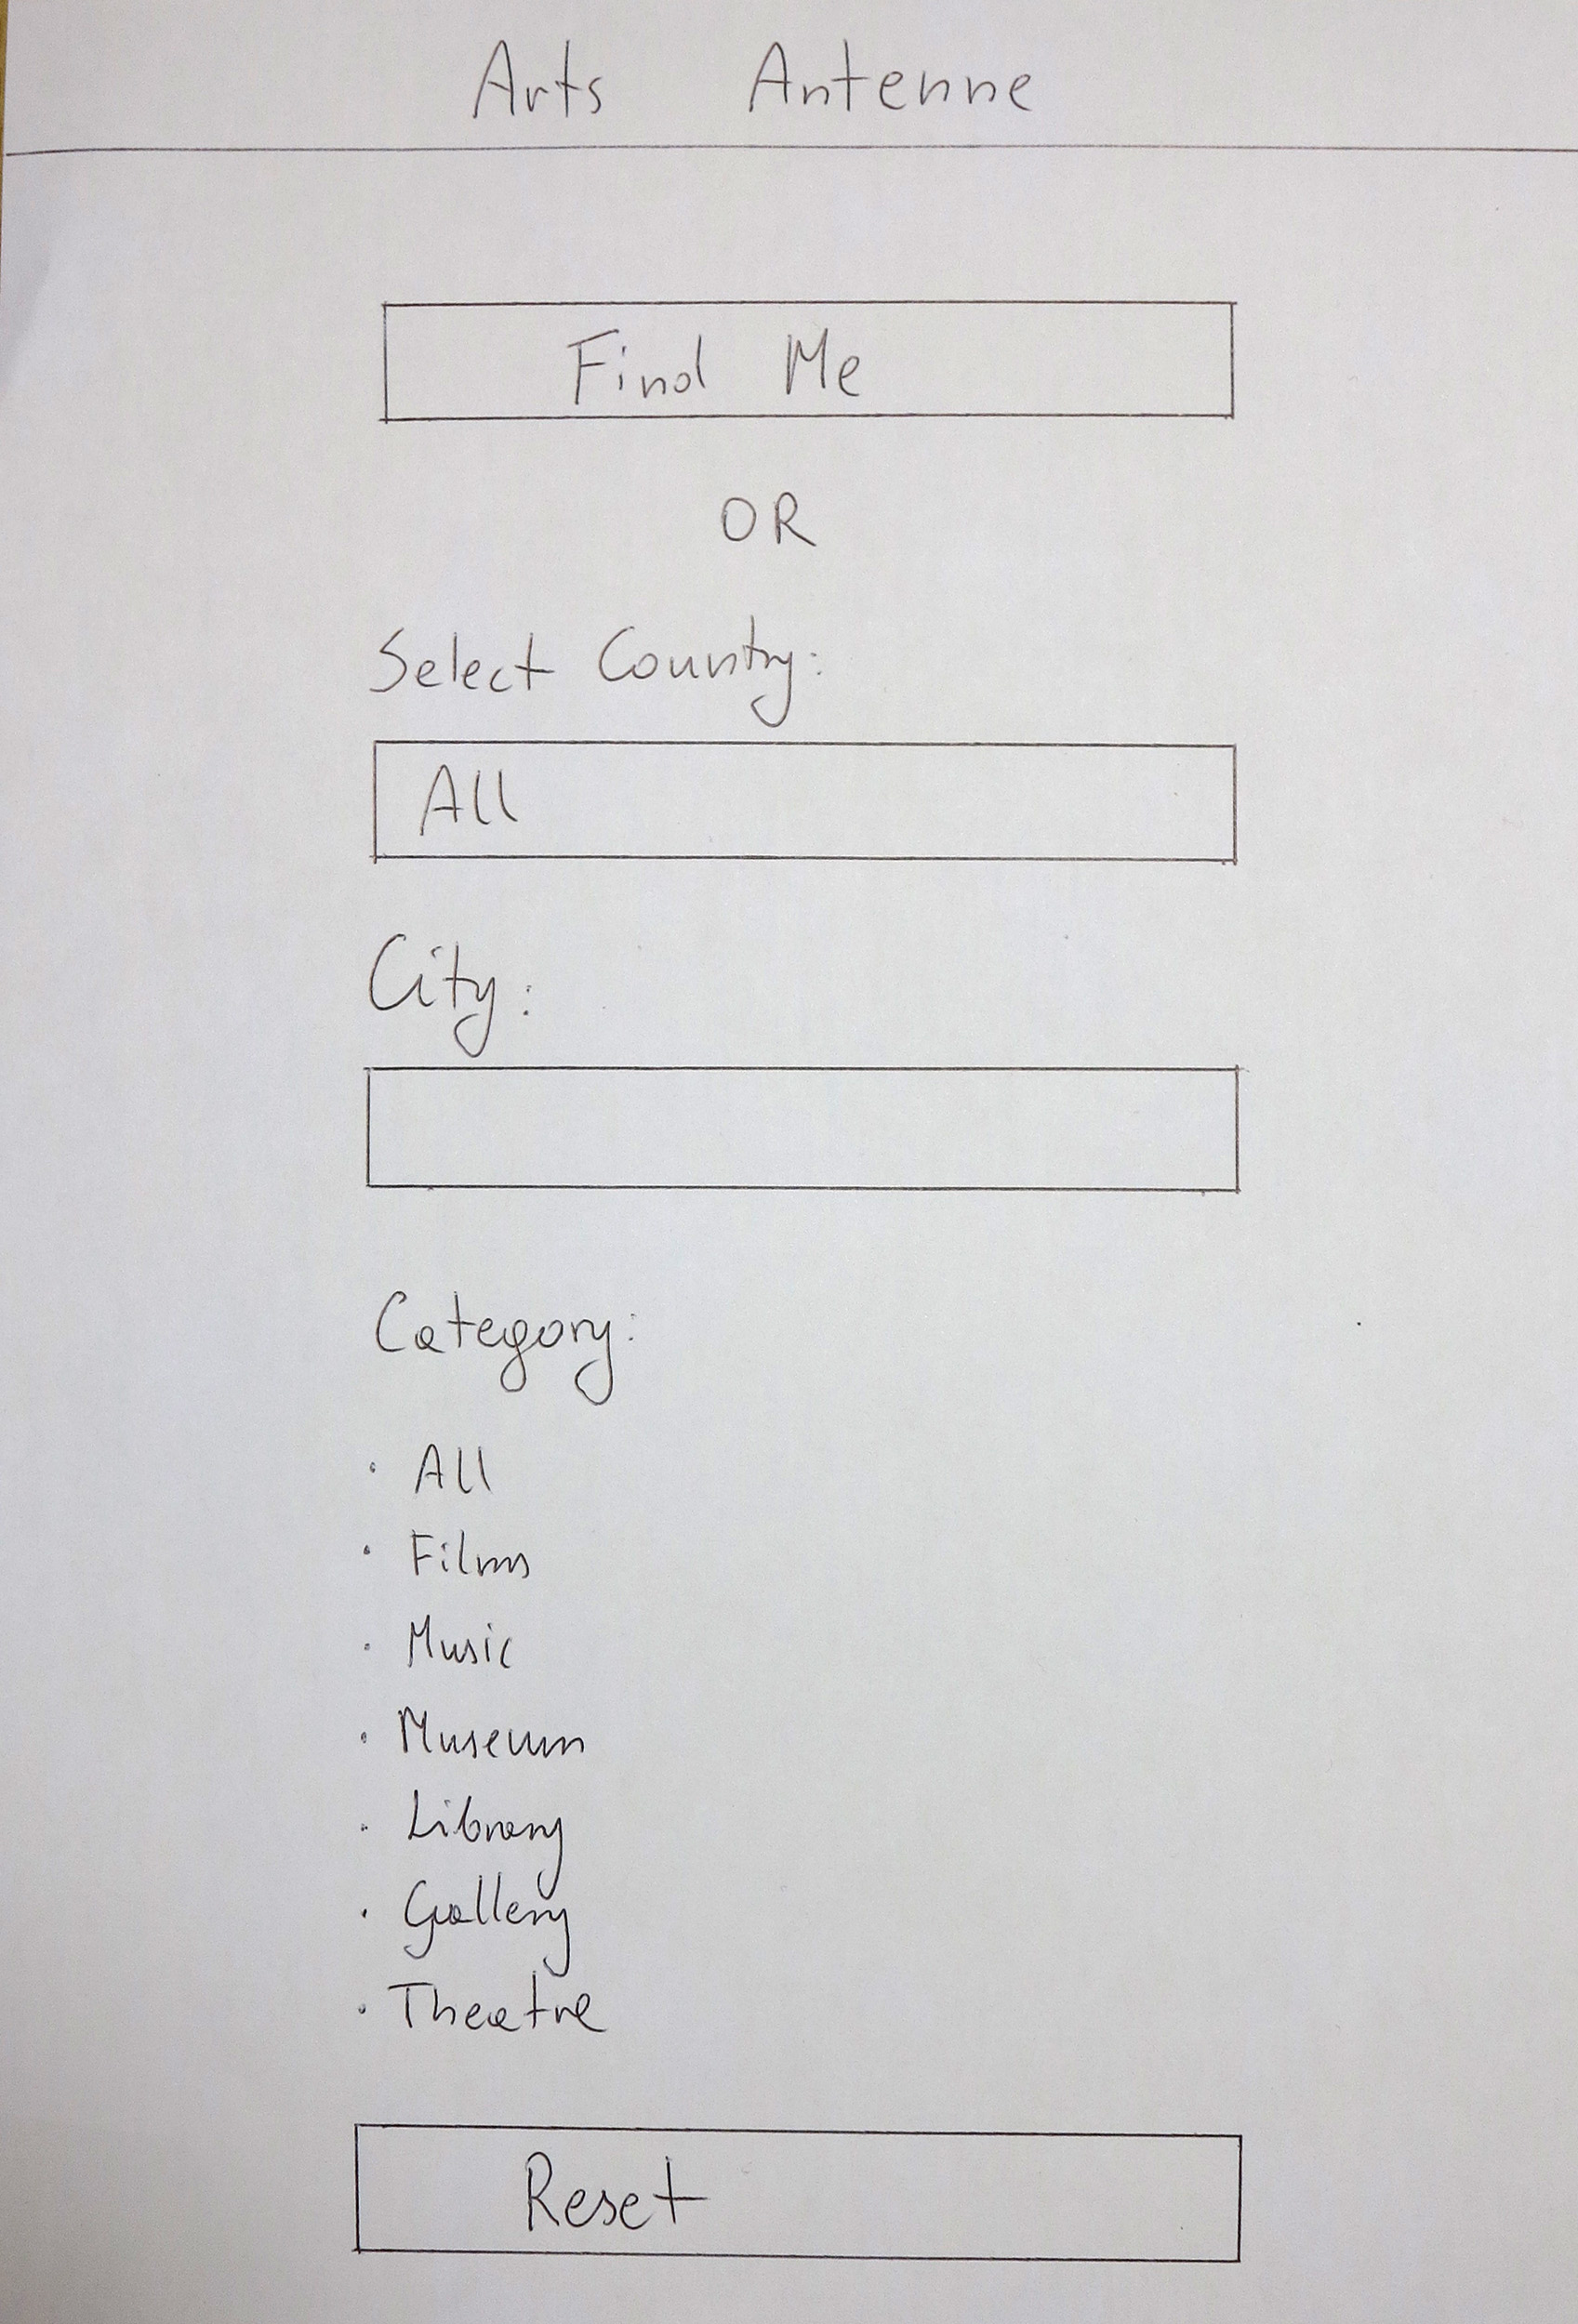 Arts Antenne
Find Me
OR
Select Country:
All
City:
Category:
· All
· Films
· Music
· Museum
· Library
· Gallery
· Theatre
Reset